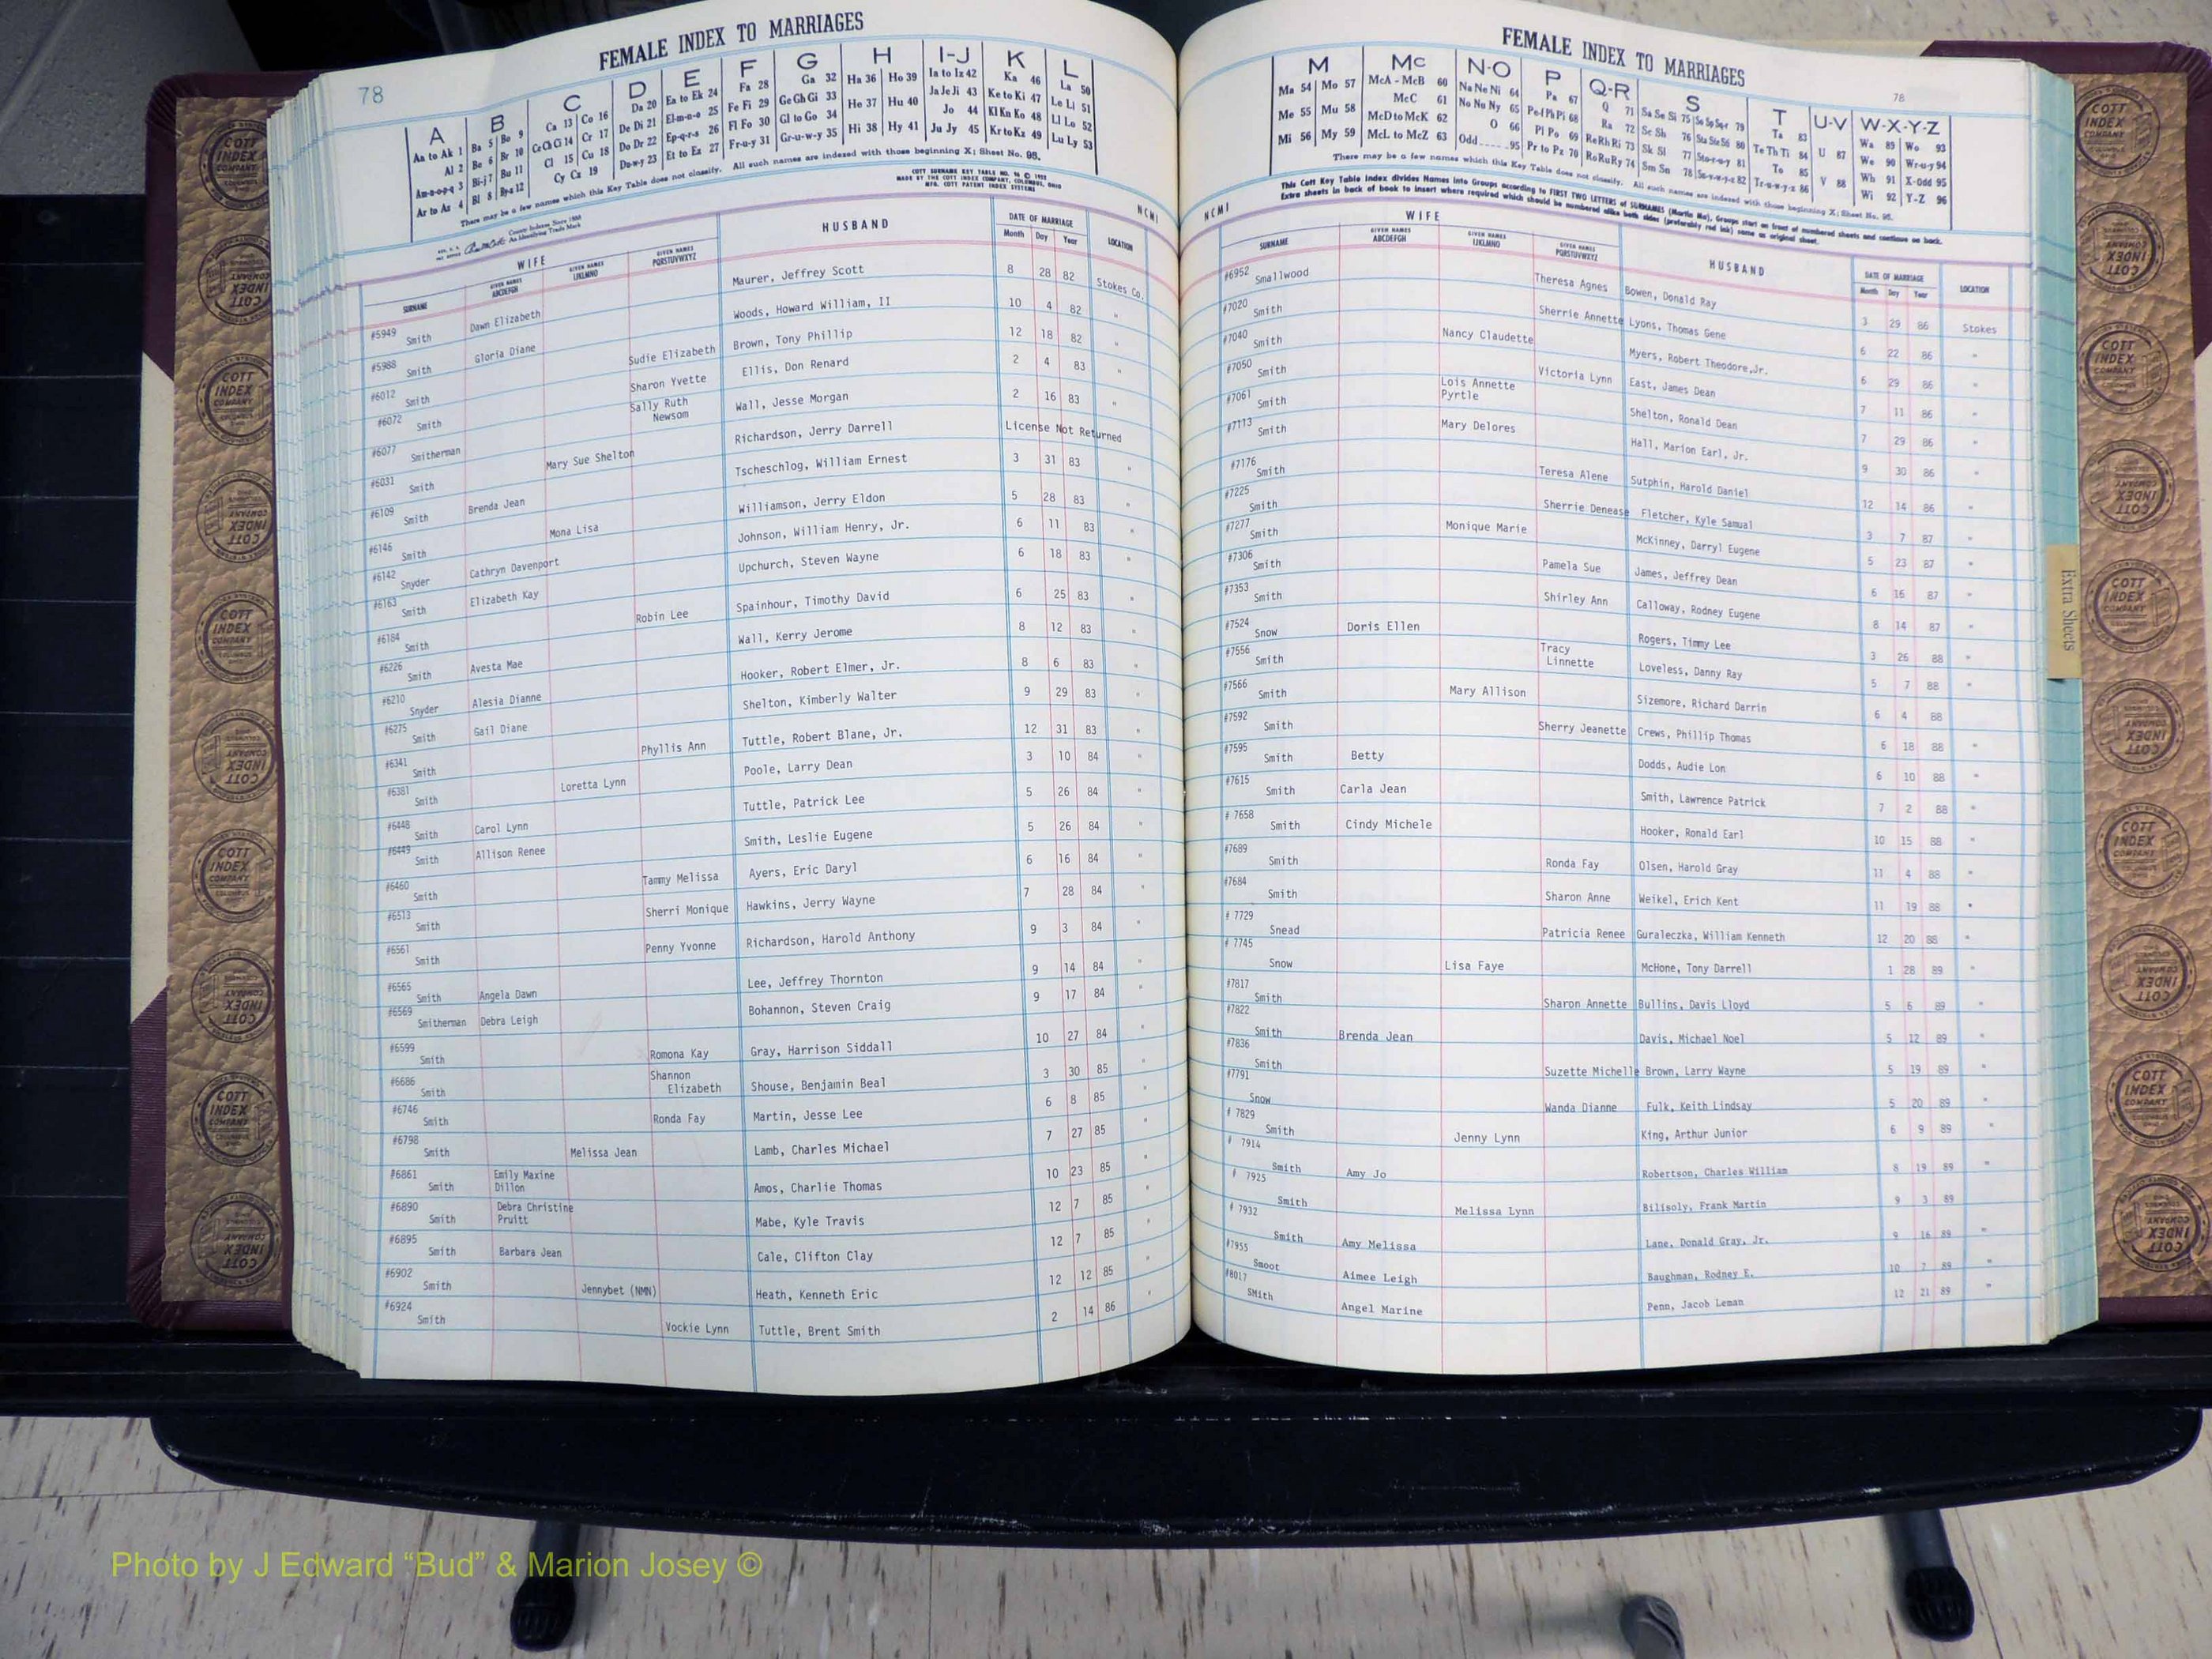 78
FEMALE INDEX TO MARRIAGES
A B C D E F G H I-J K L
Aa to Ak 1 Ba 5 Bo 9 Ca 13 Co 16 Da 20 Ea to Ek 24 Fa 28 Ga 32 Ha 36 Ho 39 Ia to Iz 42 Ka 46 La 50
Al 2 Be 6 Br 10 Ce Ch Ci 14 Cr 17 De Di 21 El-m-n-o 25 Fe Fi 29 Ge Gh Gi 33 He 37 Hu 40 Ja Je Ji 43 Ke to Ki 47 Le Li 51
Am-n-o-p-q 3 Bi-j 7 Bu 11 Cl 15 Cu 18 Do Dr 22 Ep-q-r-s 26 Fl Fo 30 Gl to Go 34 Hi 38 Hy 41 Jo 44 Kl Kn Ko 48 Ll Lo 52
Ar to Az 4 Bl 8 By-z 12 Cy Cz 19 Du-w-y 23 Et to Ez 27 Fr-u-y 31 Gr-u-w-y 35 Ju Jy 45 Kr to Kz 49 Lu Ly 53
There may be a few names which this Key Table does not classify. All such names are indexed with those beginning X; Sheet No. 95.
COTT SURNAME KEY TABLE NO. 96 © 1952
MADE BY THE COTT INDEX COMPANY, COLUMBUS, OHIO
MFG. COTT PATENT INDEX SYSTEMS
County Indexes Since 1888
An Identifying Trade Mark
NCMI
WIFE HUSBAND DATE OF MARRIAGE LOCATION
SURNAME GIVEN NAMES ABCDEFGH GIVEN NAMES IJKLMNO GIVEN NAMES PQRSTUVWXYZ Month Day Year
#5949 Smith Dawn Elizabeth Maurer, Jeffrey Scott 8 28 82 Stokes Co.
#5988 Smith Gloria Diane Woods, Howard William, II 10 4 82 "
#6012 Smith Sudie Elizabeth Brown, Tony Phillip 12 18 82 "
#6072 Smith Sharon Yvette Ellis, Don Renard 2 4 83 "
#6077 Smitherman Sally Ruth Newsom Wall, Jesse Morgan 2 16 83 "
#6031 Smith Mary Sue Shelton Richardson, Jerry Darrell License Not Returned
#6109 Smith Brenda Jean Tscheschlog, William Ernest 3 31 83 "
#6146 Smith Mona Lisa Williamson, Jerry Eldon 5 28 83 "
#6142 Snyder Cathryn Davenport Johnson, William Henry, Jr. 6 11 83 "
#6163 Smith Elizabeth Kay Upchurch, Steven Wayne 6 18 83 "
#6184 Smith Robin Lee Spainhour, Timothy David 6 25 83 "
#6226 Smith Avesta Mae Wall, Kerry Jerome 8 12 83 "
#6210 Snyder Alesia Dianne Hooker, Robert Elmer, Jr. 8 6 83 "
#6275 Smith Gail Diane Shelton, Kimberly Walter 9 29 83 "
#6341 Smith Phyllis Ann Tuttle, Robert Blane, Jr. 12 31 83 "
#6381 Smith Loretta Lynn Poole, Larry Dean 3 10 84 "
#6448 Smith Carol Lynn Tuttle, Patrick Lee 5 26 84 "
#6449 Smith Allison Renee Smith, Leslie Eugene 5 26 84 "
#6460 Smith Tammy Melissa Ayers, Eric Daryl 6 16 84 "
#6513 Smith Sherri Monique Hawkins, Jerry Wayne 7 28 84 "
#6561 Smith Penny Yvonne Richardson, Harold Anthony 9 3 84 "
#6565 Smith Angela Dawn Lee, Jeffrey Thornton 9 14 84 "
#6569 Smitherman Debra Leigh Bohannon, Steven Craig 9 17 84 "
#6599 Smith Romona Kay Gray, Harrison Siddall 10 27 84 "
#6686 Smith Shannon Elizabeth Shouse, Benjamin Beal 3 30 85 "
#6746 Smith Ronda Fay Martin, Jesse Lee 6 8 85 "
#6798 Smith Melissa Jean Lamb, Charles Michael 7 27 85 "
#6861 Smith Emily Maxine Dillon Amos, Charlie Thomas 10 23 85 "
#6890 Smith Debra Christine Pruitt Mabe, Kyle Travis 12 7 85 "
#6895 Smith Barbara Jean Cale, Clifton Clay 12 7 85 "
#6902 Smith Jennybet (NMN) Heath, Kenneth Eric 12 12 85 "
#6924 Smith Vockie Lynn Tuttle, Brent Smith 2 14 86 "
FEMALE INDEX TO MARRIAGES
78
M Mc N-O P Q-R S T U-V W-X-Y-Z
Ma 54 Mo 57 McA - McB 60 Na Ne Ni 64 Pa 67 Q 71 Sa Se Si 75 So Sp Sq-r 79 Ta 83 Wa 89 Wo 93
Me 55 Mu 58 McC 61 No Nu Ny 65 Pe Pf Ph Pi 68 Ra 72 Sc Sh 76 Sta Ste S6 80 Te Th Ti 84 U 87 We 90 Wr-u-y 94
Mi 56 My 59 McD to McK 62 O 66 Pl Po 69 Re Rh Ri 73 Sk Sl 77 Sto-r-u-y 81 To 85 V 88 Wh 91 X-Odd 95
McL to McZ 63 Odd 95 Pr to Pz 70 Ro Ru Ry 74 Sm Sn 78 Su-v-w-y-z 82 Tr-u-w-y-z 86 Wi 92 Y-Z 96
There may be a few names which this Key Table does not classify. All such names are indexed with those beginning X; Sheet No. 95.
This Cott Key Table Index divides Names into Groups according to FIRST TWO LETTERS of SURNAMES (Martin Ma), Groups start on front of numbered sheets and continue on back.
Extra sheets in back of book to insert where required which should be numbered alike both sides (preferably red ink) same as original sheet.
NCMI
WIFE HUSBAND DATE OF MARRIAGE LOCATION
SURNAME GIVEN NAMES ABCDEFGH GIVEN NAMES IJKLMNO GIVEN NAMES PQRSTUVWXYZ Month Day Year
#6952 Smallwood Theresa Agnes Bowen, Donald Ray 3 29 86 Stokes
#7020 Smith Sherrie Annette Lyons, Thomas Gene 6 22 86 "
#7040 Smith Nancy Claudette Myers, Robert Theodore,Jr. 6 29 86 "
#7050 Smith Victoria Lynn East, James Dean 7 11 86 "
#7061 Smith Lois Annette Pyrtle Shelton, Ronald Dean 7 29 86 "
#7113 Smith Mary Delores Hall, Marion Earl, Jr. 9 30 86 "
#7176 Smith Teresa Alene Sutphin, Harold Daniel 12 14 86 "
#7225 Smith Sherrie Denease Fletcher, Kyle Samual 3 7 87 "
#7277 Smith Monique Marie McKinney, Darryl Eugene 5 23 87 "
#7306 Smith Pamela Sue James, Jeffrey Dean 6 16 87 "
#7353 Smith Shirley Ann Calloway, Rodney Eugene 8 14 87 "
#7524 Snow Doris Ellen Rogers, Timmy Lee 3 26 88 "
#7556 Smith Tracy Linnette Loveless, Danny Ray 5 7 88 "
#7566 Smith Mary Allison Sizemore, Richard Darrin 6 4 88
#7592 Smith Sherry Jeanette Crews, Phillip Thomas 6 18 88 "
#7595 Smith Betty Dodds, Audie Lon 6 10 88 "
#7615 Smith Carla Jean Smith, Lawrence Patrick 7 2 88 "
# 7658 Smith Cindy Michele Hooker, Ronald Earl 10 15 88 "
#7689 Smith Ronda Fay Olsen, Harold Gray 11 4 88 "
#7684 Smith Sharon Anne Weikel, Erich Kent 11 19 88 "
# 7729 Snead Patricia Renee Guraleczka, William Kenneth 12 20 88 "
# 7745 Snow Lisa Faye McHone, Tony Darrell 1 28 89 "
#7817 Smith Sharon Annette Bullins, Davis Lloyd 5 6 89 "
#7822 Smith Brenda Jean Davis, Michael Noel 5 12 89 "
#7836 Smith Suzette Michelle Brown, Larry Wayne 5 19 89 "
#7791 Snow Wanda Dianne Fulk, Keith Lindsay 5 20 89 "
# 7829 Smith Jenny Lynn King, Arthur Junior 6 9 89 "
# 7914 Smith Amy Jo Robertson, Charles William 8 19 89 "
# 7925 Smith Melissa Lynn Bilisoly, Frank Martin 9 3 89
# 7932 Smith Amy Melissa Lane, Donald Gray, Jr. 9 16 89 "
#7955 Smoot Aimee Leigh Baughman, Rodney E. 10 7 89 "
#8017 SMith Angel Marine Penn, Jacob Leman 12 21 89 "
Extra Sheets
COTT INDEX COMPANY COLUMBUS OHIO
Photo by J Edward “Bud” & Marion Josey ©